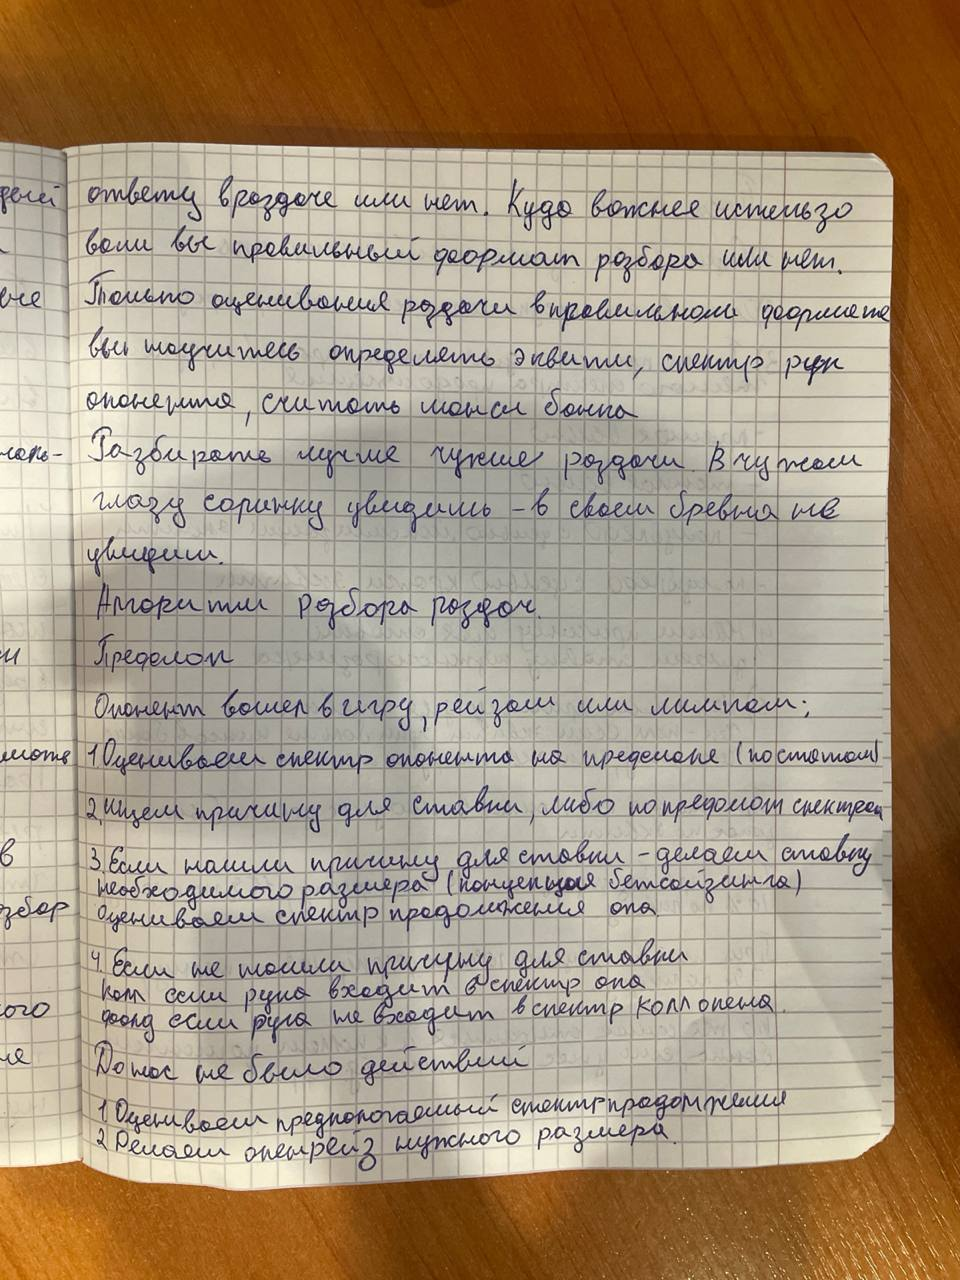 дей ответу в раздаче или нет. Куда важнее использо
вали вы правильный формат разбора или нет.
Только оценивания раздачи в правильном формате
вы научитесь определять эквити, спектр рук
опонента, считать шансы банка
Разбирать лучше чужие раздачи. В чужом
глазу соринку увидишь - в своем бревна не
увидиш.
Алгоритм розбора роздач.
Префлоп
Опонент вошел в игру, рейзом или лимпом;
1. Оцениваем спектр опонента на префлопе (по статам)
2. ищем причину для ставки, либо по префлоп спектрам
3. Если нашли причину для ставки - делаем ставку
необходимого размера (концепция бетсайзинга)
Оцениваем спектр продолжения опа
4. Если не нашли причину для ставки
Колл если рука входит в спектр опа
фолд если рука не входит в спектр колл опена.
До нас не было действий
1 Оцениваем предпологаемый спектр продолжения
2 Делаем опенрейз нужного размера.